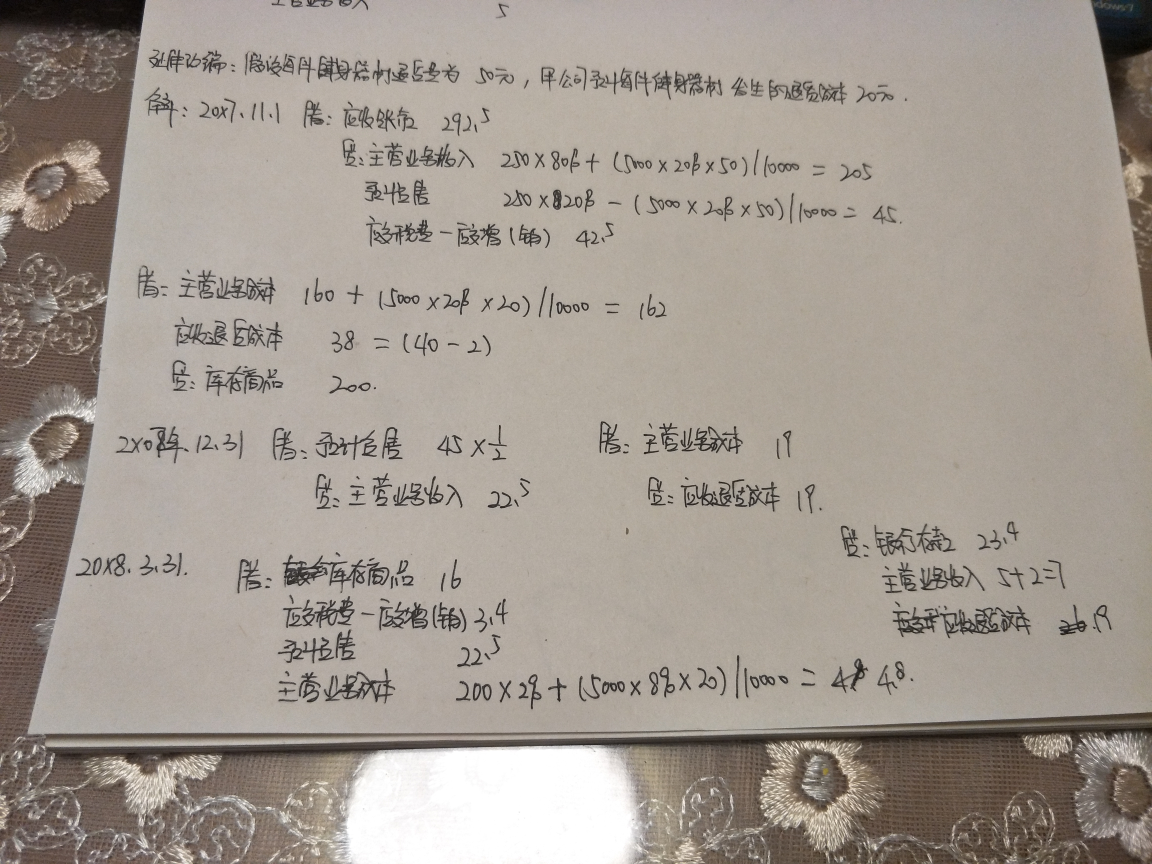 主营业务收入 5
延伸改编：假设每件健身器材退货费为 50元，甲公司预计每件健身器材发生的退货成本 20元.
20X7.11.1 借：应收账款 292.5
贷：主营业务收入 250×80%+(5000×20%×50)/10000=205
预计负债 250×20%-(5000×20%×50)/10000=45.
应交税费-应交增(销) 42.5
借：主营业务成本 160+(5000×20%×20)/10000=162
应收退货成本 38=(40-2)
贷：库存商品 200.
12.31 借：预计负债 45×1/2 借：主营业务成本 19
贷：主营业务收入 22.5 贷：应收退货成本 19.
贷：银行存款 23.4
20X8.3.31. 借：库存商品 16 主营业务收入 5+2=7
应交税费-应交增(销) 3.4 应收退货成本 19
预计负债 22.5
主营业务成本 200×2%+(5000×8%×20)/10000=4.8.